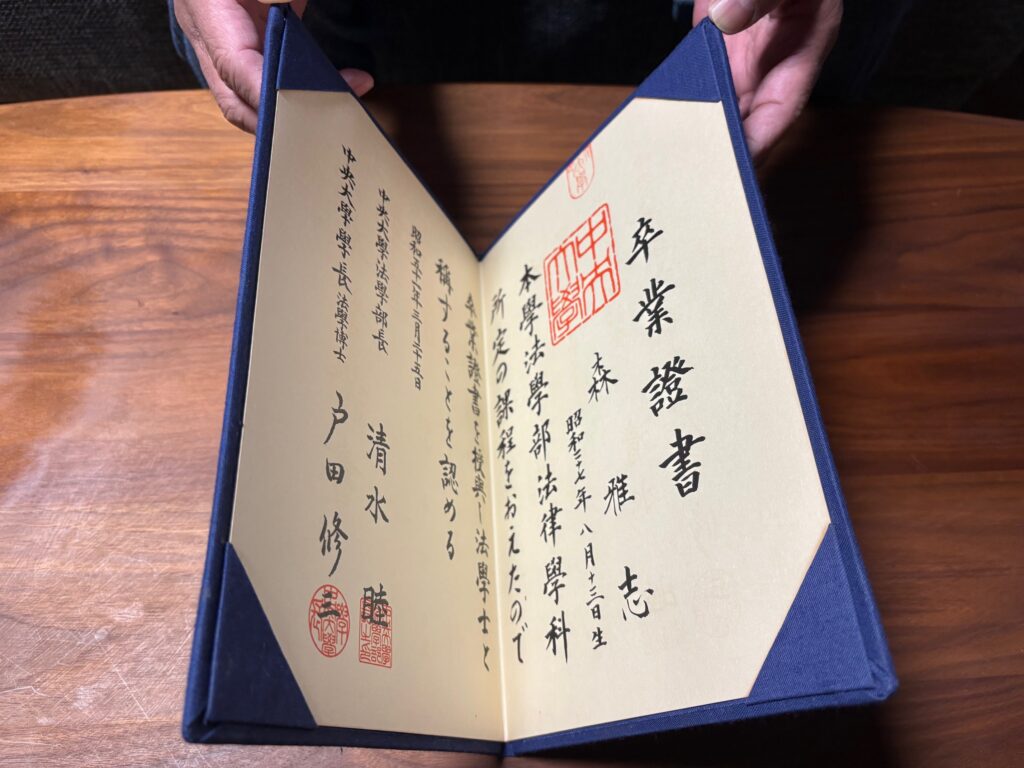 卒業證書
中央大學
森雅志
昭和二十七年八月十三日生
本學法學部法律學科
所定の課程をおえたので
卒業證書を授與し法學士と
稱することを認める
昭和五十一年三月二十五日
中央大學法學部長 清水睦
中央大學學長法學博士 戸田修三